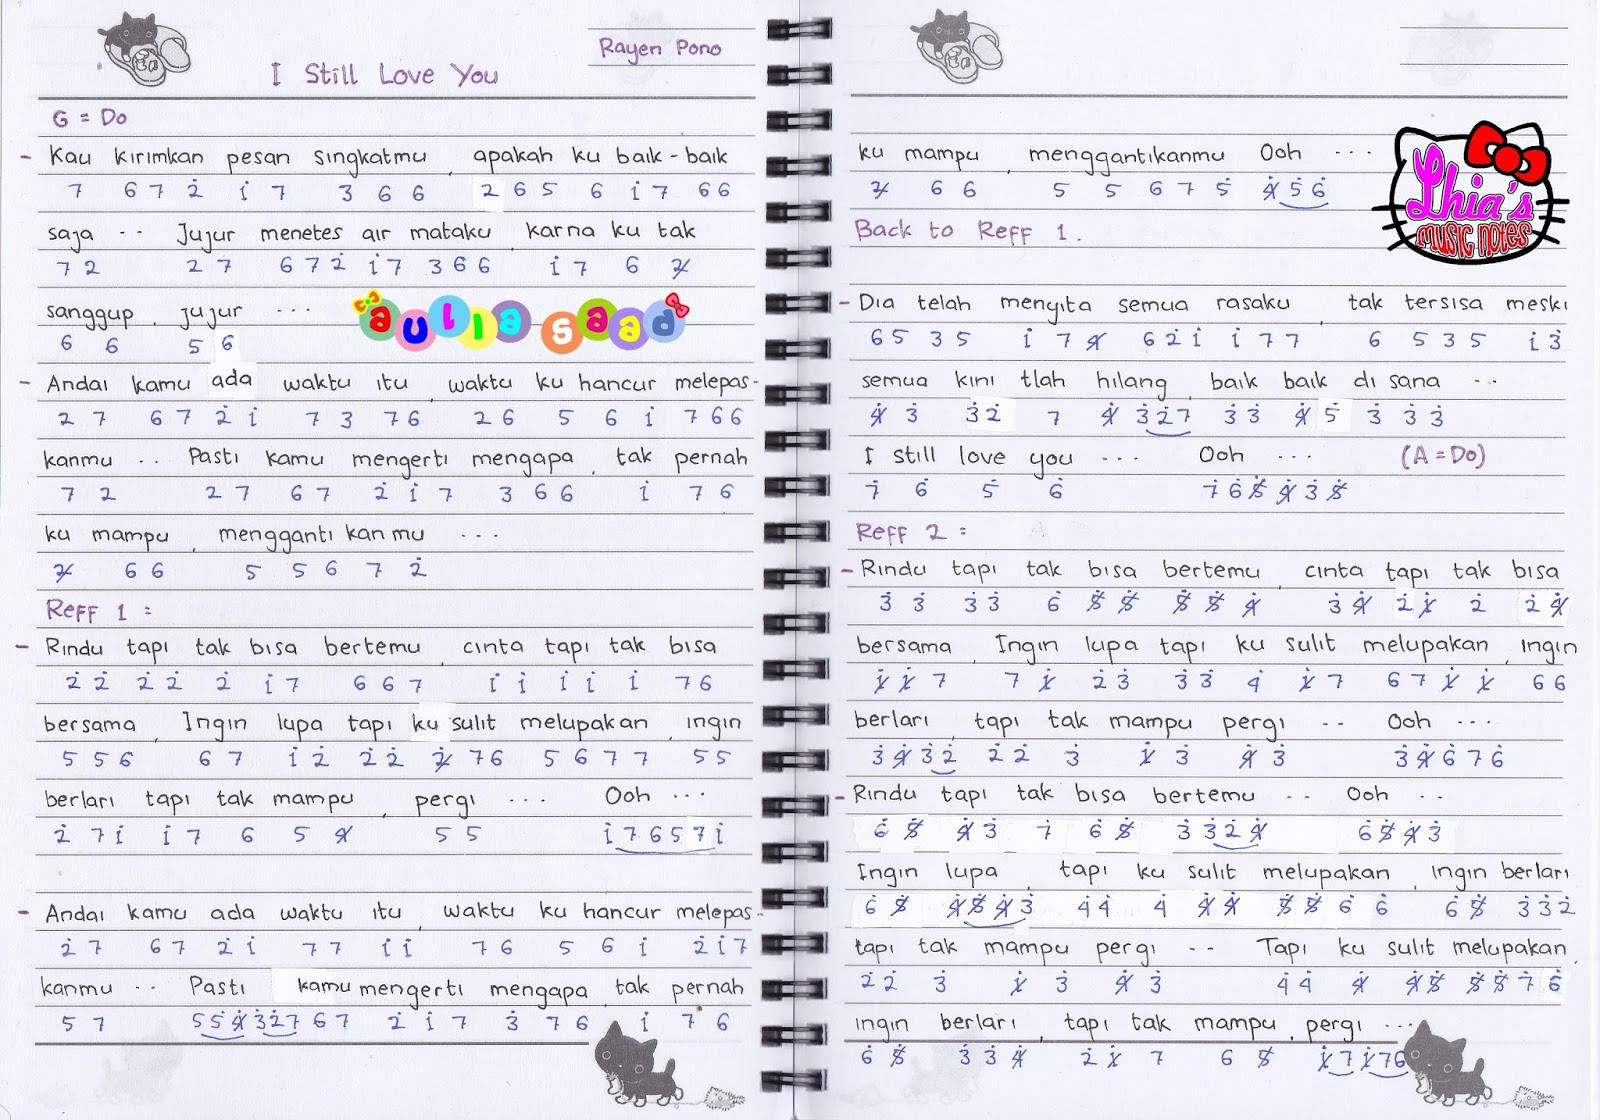 Rayen Pono
I Still Love You
G = Do
- Kau kirimkan pesan singkatmu, apakah ku baik - baik
7 6 7 2̇ 1̇ 7 3 6 6 2 6 5 6 1̇ 7 6 6
saja .. Jujur menetes air mataku, karna ku tak
7 2 2 7 6 7 2̇ 1̇ 7 3 6 6 1̇ 7 6 2̸
sanggup, jujur ...
6 6 5 6
aulia saad
- Andai kamu ada waktu itu, waktu ku hancur melepas-
2 7 6 7 2̇ 1̇ 7 3 7 6 2 6 5 6 1̇ 7 6 6
kanmu .. Pasti kamu mengerti mengapa, tak pernah
7 2 2 7 6 7 2̇ 1̇ 7 3 6 6 1̇ 7 6
ku mampu, mengganti kanmu ...
2̸ 6 6 5 5 6 7 2̇
Reff 1 :
- Rindu tapi tak bisa bertemu, cinta tapi tak bisa
2̇ 2̇ 2̇ 2̇ 2̇ 1̇ 7 6 6 7 1̇ 1̇ 1̇ 1̇ 1̇ 7 6
bersama, Ingin lupa tapi ku sulit melupakan, ingin
5 5 6 6 7 1̇ 2̇ 2̇ 2̇ 2̸̇ 7 6 5 6 7 7 5 5
berlari tapi tak mampu, pergi ... Ooh ...
2̇ 7 1̇ 1̇ 7 6 5 4̸ 5 5 1̇ 7 6 5 7 1̇
- Andai kamu ada waktu itu, waktu ku hancur melepas-
2̇ 7 6 7 2̇ 1̇ 7 7 1̇ 1̇ 7 6 5 6 1̇ 2̇ 1̇ 7
kanmu .. Pasti kamu mengerti mengapa, tak pernah
5 7 5 5̇ 4̸̇ 3̇ 2̇ 7 6 7 2̇ 1̇ 7 3̇ 7 6 1̇ 7 6
ku mampu, menggantikanmu Ooh ...
2̸ 6 6 5 5 6 7 5̇ 4̸̇ 5̇ 6̇
Lhia's
Music Notes
Back to Reff 1.
- Dia telah menyita semua rasaku, tak tersisa meski
6 5 3 5 1̇ 7 4̸ 6 2̇ 1̇ 1̇ 7 7 6 5 3 5 1̇ 3̇
semua kini tlah hilang, baik baik di sana ..
4̸̇ 3̇ 3̇ 2̇ 7 4̸̇ 3̇ 2̇ 7 3̇ 3̇ 4̸̇ 5̇ 3̇ 3̇ 3̇
I still love you ... Ooh ... (A = Do)
7̇ 6̇ 5̇ 6̇ 7̇ 6̇ 5̸̇ 4̸̇ 3̇ 5̸̇
Reff 2 :
- Rindu tapi tak bisa bertemu, cinta tapi tak bisa
3̇ 3̇ 3̇ 3̇ 6̇ 5̸̇ 5̸̇ 5̸̇ 5̸̇ 4̸̇ 3̇ 4̸̇ 2̇ 1̸̇ 2̇ 2̇ 4̸̇
bersama, Ingin lupa tapi ku sulit melupakan, ingin
1̸̇ 1̸̇ 7 7 1̸̇ 2̇ 3̇ 3̇ 3̇ 4̇ 1̸̇ 7 6 7 1̸̇ 1̸̇ 6 6
berlari, tapi tak mampu pergi .. Ooh ...
3̇ 4̸̇ 3̇ 2̇ 2̇ 2̇ 3̇ 1̸̇ 3̇ 4̸̇ 3̇ 3̇ 4̸̇ 6̇ 7̇ 6̇
- Rindu tapi tak bisa bertemu .. Ooh ..
6̇ 5̸̇ 4̸̇ 3̇ 7̇ 6̇ 5̸̇ 3̇ 3̇ 2̇ 4̸̇ 6̇ 5̸̇ 4̸̇ 3̇
Ingin lupa, tapi ku sulit melupakan, ingin berlari
6̇ 5̸̇ 4̸̇ 5̸̇ 4̸̇ 3̇ 4̇ 4̇ 4̇ 4̸̇ 4̸̇ 5̸̇ 5̸̇ 6̇ 6̇ 6̇ 5̸̇ 3̇ 3̇ 2̇
tapi tak mampu pergi .. Tapi ku sulit melupakan,
2̇ 2̇ 3̇ 1̸̇ 3̇ 4̸̇ 3̇ 4̇ 4̇ 4̸̇ 4̸̇ 5̸̇ 5̸̇ 5̸̇ 7̇ 6̇
ingin berlari, tapi tak mampu, pergi ...
6̇ 5̸̇ 3̇ 3̇ 4̸̇ 2̇ 1̸̇ 7 6 5̸ 1̸̇ 7 1̸̇ 7 6